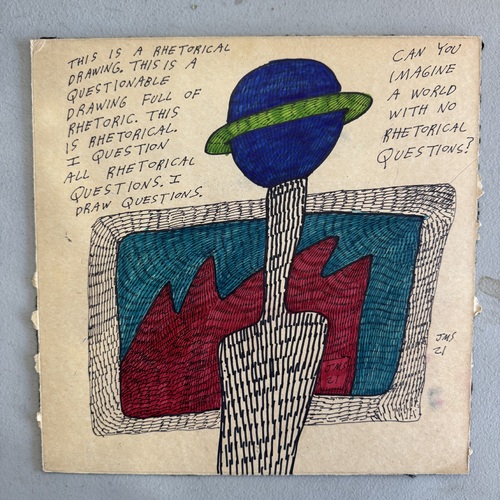 THIS IS A RHETORICAL
DRAWING. THIS IS A
QUESTIONABLE
DRAWING FULL OF
RHETORIC. THIS
IS RHETORICAL.
I QUESTION
ALL RHETORICAL
QUESTIONS. I
DRAW QUESTIONS.
CAN YOU
IMAGINE
A WORLD
WITH NO
RHETORICAL
QUESTIONS?
JMS
21
JMS
21